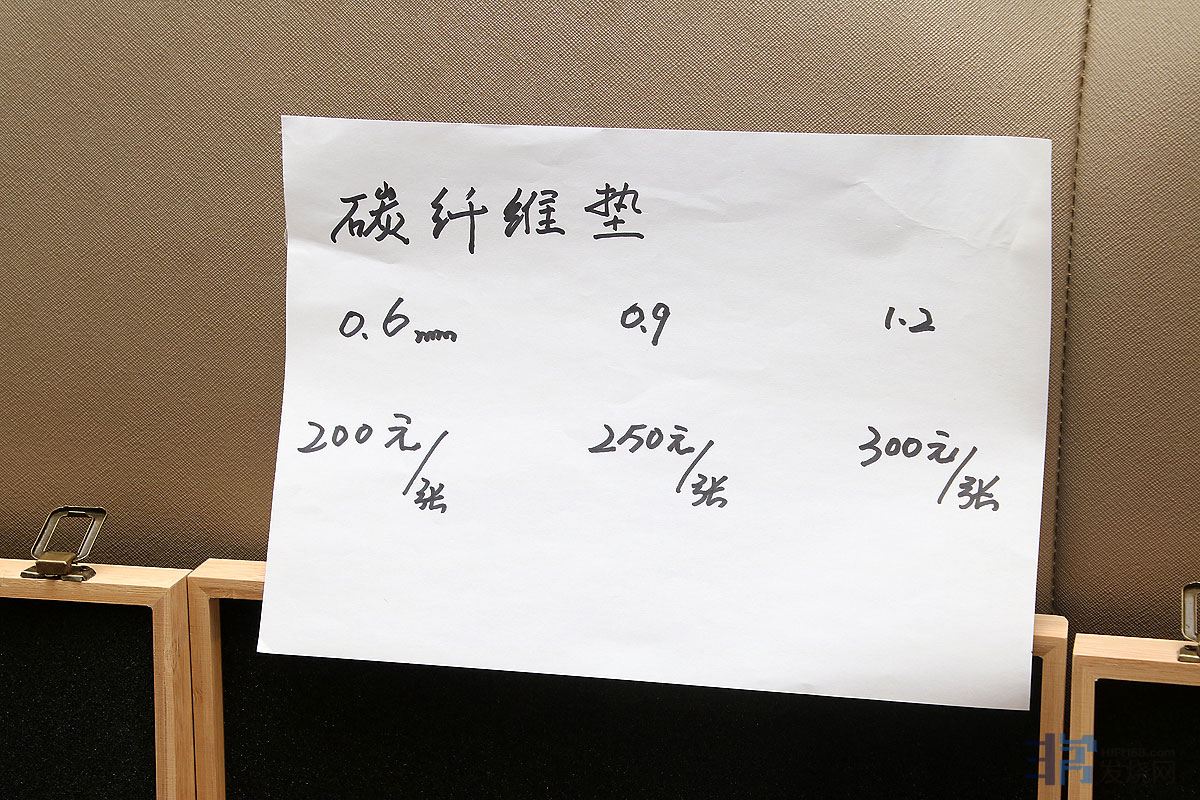 碳纤维垫
0.6mm 0.9 1.2
200元/张 250元/张 300元/张
HIFI168.com
发烧网